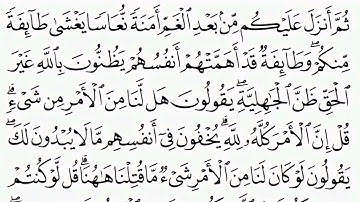 ثُمَّ أَنزَلَ عَلَيْكُم مِّنۢ بَعْدِ ٱلْغَمِّ أَمَنَةً نُّعَاسًا يَغْشَىٰ طَآئِفَةً
مِّنكُمْ ۖ وَطَآئِفَةٌ قَدْ أَهَمَّتْهُمْ أَنفُسُهُمْ يَظُنُّونَ بِٱللَّهِ غَيْرَ
ٱلْحَقِّ ظَنَّ ٱلْجَٰهِلِيَّةِ ۖ يَقُولُونَ هَل لَّنَا مِنَ ٱلْأَمْرِ مِن شَىْءٍ ۗ
قُلْ إِنَّ ٱلْأَمْرَ كُلَّهُۥ لِلَّهِ ۗ يُخْفُونَ فِىٓ أَنفُسِهِم مَّا لَا يُبْدُونَ لَكَ ۖ
يَقُولُونَ لَوْ كَانَ لَنَا مِنَ ٱلْأَمْرِ شَىْءٌ مَّا قُتِلْنَا هَٰهُنَا ۗ قُل لَّوْ كُنتُمْ